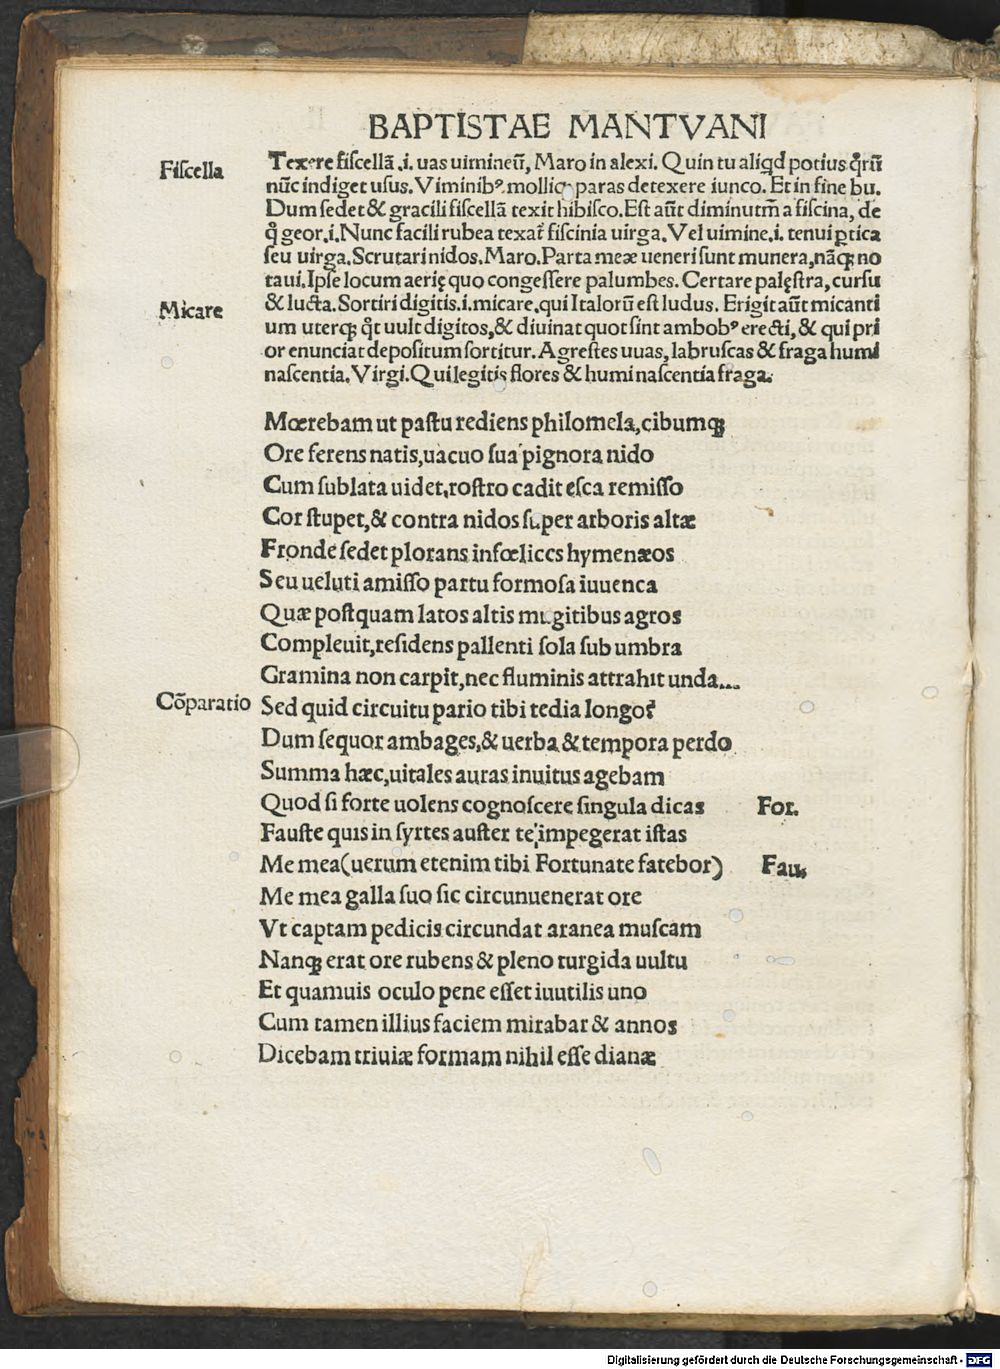 BAPTISTAE MANTVANI
Fiſcella
Texere fiſcellã .i. uas uimineũ, Maro in alexi. Quin tu aliqd potius qrũ
nũc indiget uſus. Viminibꝰ mollicꝫ paras detexere iunco. Et in fine bu.
Dum ſedet & gracili fiſcellã texit hibiſco. Eſt aũt diminutm̃ a fiſcina, de
q̃ geor.i. Nunc facili rubea texat̃ fiſcinia uirga. Vel uimine.i. tenui ꝑtica
ſeu uirga. Scrutari nidos. Maro. Parta meæ ueneri ſunt munera, nãqꝫ no
taui. Ipſe locum aerię quo congeſſere palumbes. Certare palęſtra, curſu
Micare
& lucta. Sortiri digitis.i. micare, qui Italorũ eſt ludus. Erigit aũt micanti
um uterqꝫ q̃t uult digitos, & diuinat quot ſint ambobꝰ erecti, & qui pri
or enunciat depoſitum ſortitur. Agreſtes uuas, labruſcas & fraga humi
naſcentia. Virgi. Qui legitis flores & humi naſcentia fraga.
Mœrebam ut paſtu rediens philomela, cibumqꝫ
Ore ferens natis, uacuo ſua pignora nido
Cum ſublata uidet, roſtro cadit eſca remiſſo
Cor ſtupet, & contra nidos ſuper arboris altæ
Fronde ſedet plorans infœlices hymenæos
Seu ueluti amiſſo partu formoſa iuuenca
Quæ poſtquam latos altis mugitibus agros
Compleuit, reſidens pallenti ſola ſub umbra
Gramina non carpit, nec fluminis attrahit unda...
Cõparatio
Sed quid circuitu pario tibi tedia longo?
Dum ſequor ambages, & uerba & tempora perdo
Summa hæc, uitales auras inuitus agebam
Quod ſi forte uolens cognoſcere ſingula dicas For.
Fauſte quis in ſyrtes auſter te impegerat iſtas
Me mea (uerum etenim tibi Fortunate fatebor) Fau.
Me mea galla ſuo ſic circunuenerat ore
Vt captam pedicis circundat aranea muſcam
Nanqꝫ erat ore rubens & pleno turgida uultu
Et quamuis oculo pene eſſet iuutilis uno
Cum tamen illius faciem mirabar & annos
Dicebam triuiæ formam nihil eſſe dianæ
Digitalisierung gefördert durch die Deutsche Forschungsgemeinschaft - DFG